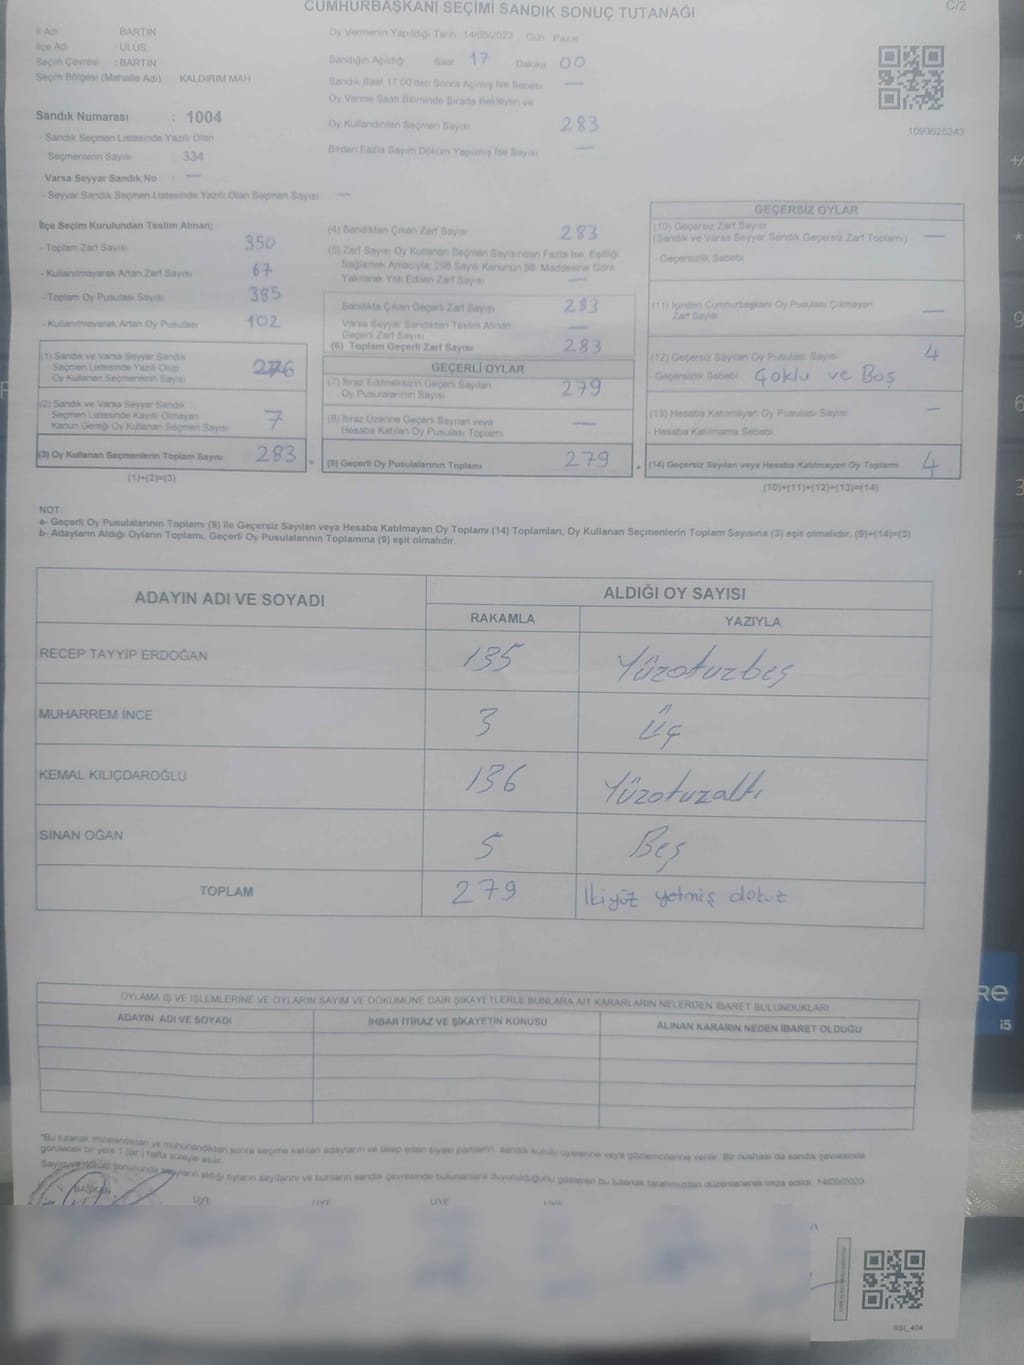 CUMHURBAŞKANI SEÇİMİ SANDIK SONUÇ TUTANAĞI
C/2
İl Adı BARTIN
İlçe Adı ULUS
Seçim Çevresi : BARTIN
Seçim Bölgesi (Mahalle Adı) KALDIRIM MAH
Sandık Numarası : 1004
- Sandık Seçmen Listesinde Yazılı Olan
Seçmenlerin Sayısı : 334
Varsa Seyyar Sandık No : —
- Seyyar Sandık Seçmen Listesinde Yazılı Olan Seçmen Sayısı —
Oy Vermenin Yapıldığı Tarih 14/05/2023 Gün Pazar
Sandığın Açıldığı Saat 17 Dakika 00
Sandık Saat 17:00'den Sonra Açılmış İse Sebebi —
Oy Verme Saati Bitiminde Sırada Bekleyen ve
Oy Kullandırılan Seçmen Sayısı 283
Birden Fazla Sayım Döküm Yapılmış İse Sayısı —
1093625243
İlçe Seçim Kurulundan Teslim Alınan;
- Toplam Zarf Sayısı 350
- Kullanılmayarak Artan Zarf Sayısı 67
- Toplam Oy Pusulası Sayısı 385
- Kullanılmayarak Artan Oy Pusulası 102
(1) Sandık ve Varsa Seyyar Sandık
Seçmen Listesinde Yazılı Olup
Oy Kullanan Seçmenlerin Sayısı 276
(2) Sandık ve Varsa Seyyar Sandık
Seçmen Listesinde Kayıtlı Olmayan
Kanun Gereği Oy Kullanan Seçmen Sayısı 7
(3) Oy Kullanan Seçmenlerin Toplam Sayısı 283
(1)+(2)=(3)
(4) Sandıktan Çıkan Zarf Sayısı 283
(5) Zarf Sayısı Oy Kullanan Seçmen Sayısından Fazla İse, Eşitliği
Sağlamak Amacıyla, 298 Sayılı Kanunun 98. Maddesine Göre
Yakılarak Yok Edilen Zarf Sayısı —
Sandıkta Çıkan Geçerli Zarf Sayısı 283
Varsa Seyyar Sandıktan Teslim Alınan
Geçerli Zarf Sayısı —
(6) Toplam Geçerli Zarf Sayısı 283
GEÇERLİ OYLAR
(7) İtiraz Edilmeksizin Geçerli Sayılan
Oy Pusulalarının Sayısı 279
(8) İtiraz Üzerine Geçerli Sayılan veya
Hesaba Katılan Oy Pusulası Toplamı —
(9) Geçerli Oy Pusulalarının Toplamı 279
GEÇERSİZ OYLAR
(10) Geçersiz Zarf Sayısı
(Sandık ve Varsa Seyyar Sandık Geçersiz Zarf Toplamı) —
- Geçersizlik Sebebi
(11) İçinden Cumhurbaşkanı Oy Pusulası Çıkmayan
Zarf Sayısı —
(12) Geçersiz Sayılan Oy Pusulası Sayısı 4
- Geçersizlik Sebebi Çoklu ve Boş
(13) Hesaba Katılmayan Oy Pusulası Sayısı —
- Hesaba Katılmama Sebebi
(14) Geçersiz Sayılan veya Hesaba Katılmayan Oy Toplamı 4
(10)+(11)+(12)+(13)=(14)
NOT:
a- Geçerli Oy Pusulalarının Toplamı (9) ile Geçersiz Sayılan veya Hesaba Katılmayan Oy Toplamı (14) Toplamları, Oy Kullanan Seçmenlerin Toplam Sayısına (3) eşit olmalıdır. (9)+(14)=(3)
b- Adayların Aldığı Oyların Toplamı, Geçerli Oy Pusulalarının Toplamına (9) eşit olmalıdır.
ADAYIN ADI VE SOYADI
ALDIĞI OY SAYISI
RAKAMLA YAZIYLA
RECEP TAYYİP ERDOĞAN 135 Yüzotuzbeş
MUHARREM İNCE 3 Üç
KEMAL KILIÇDAROĞLU 136 Yüzotuzaltı
SİNAN OĞAN 5 Beş
TOPLAM 279 İkiyüz yetmiş dokuz
OYLAMA İŞ VE İŞLEMLERİNE VE OYLARIN SAYIM VE DÖKÜMÜNE DAİR ŞİKAYETLERLE BUNLARA AİT KARARLARIN NELERDEN İBARET BULUNDUKLARI
ADAYIN ADI VE SOYADI İHBAR İTİRAZ VE ŞİKAYETİN KONUSU ALINAN KARARIN NEDEN İBARET OLDUĞU
"Bu tutanak imzalandıktan ve mühürlendikten sonra seçime katılan adayların ve talep eden siyasi partilerin, sandık kurulu üyelerine veya gözlemcilerine verilir. Bir nüshası da sandık çevresinde
görülecek bir yere 1 (bir) hafta süreyle asılır.
Sayım ve döküm sonucunda adayların aldığı oyların sayılarını ve bunların sandık çevresinde bulunanlara duyurulduğunu gösteren bu tutanak tarafımızdan düzenlenerek imza edildi. 14/05/2023
BAŞKAN ÜYE ÜYE ÜYE ÜYE
SSİ_404
RE
i5